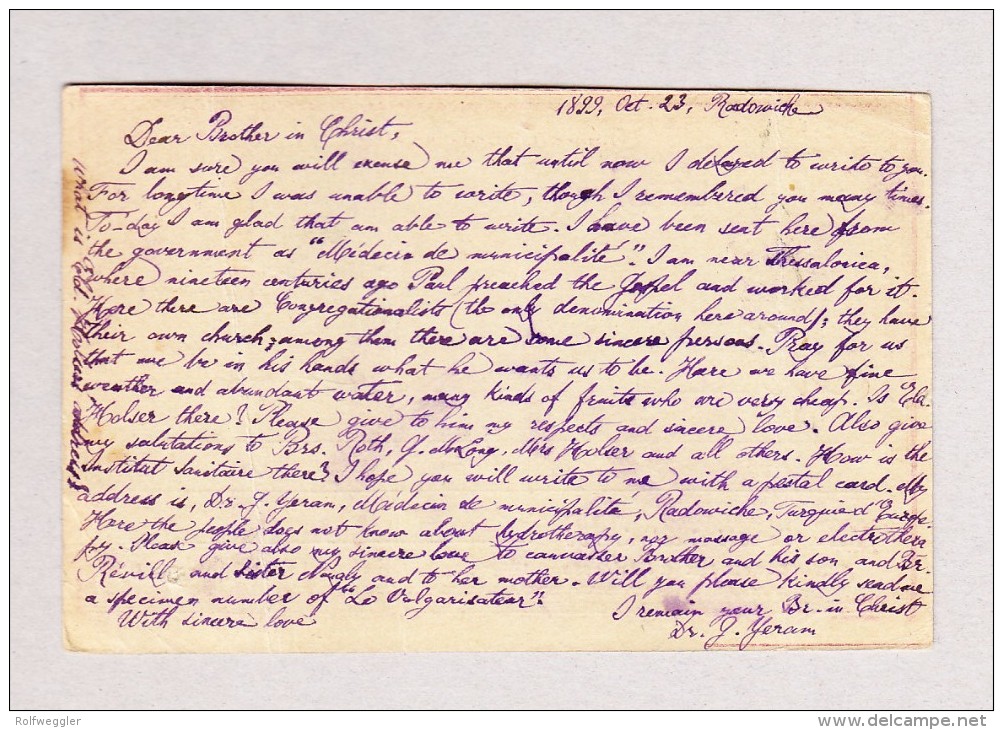 1899, Oct. 23, Radowiche
Dear Brother in Christ,
I am sure you will excuse me that until now I delayed to write to you.
For longtime I was unable to write, though I remembered you many times.
To-day I am glad that am able to write. I have been sent here from
the government as "Médecin de municipalité". I am near Thessalonica,
where nineteen centuries ago Paul preached the Gospel and worked for it.
Here there are Congregationalists (the only denomination here around); they have
their own church; among them there are some sincere persons. Pray for us
that we be in his hands what he wants us to be. Here we have fine
weather and abundant water, many kinds of fruits who are very cheap. Is Eld.
Holser there? Please give to him my respects and sincere love. Also give
my salutations to Brs. Roth, Y. McLong, Mrs Holser and all others. How is the
Institut Sanitaire there? I hope you will write to me with a postal card. My
address is, Dr. J. Yeram, Médecin de municipalité, Radowiche, Turquie d'Europe.
Here the people does not know about hydrotherapy, nor massage or electrothera
py. Please give also my sincere love to canvasser Brother and his son and Br.
Réville and Sister and to her mother. Will you please kindly send me
a specimen number of "Le Vulgarisateur".
I remain your Br. in Christ
With sincere love
Dr. J. Yeram
What is Eld. address?
Rolfweggler
delcampe.net